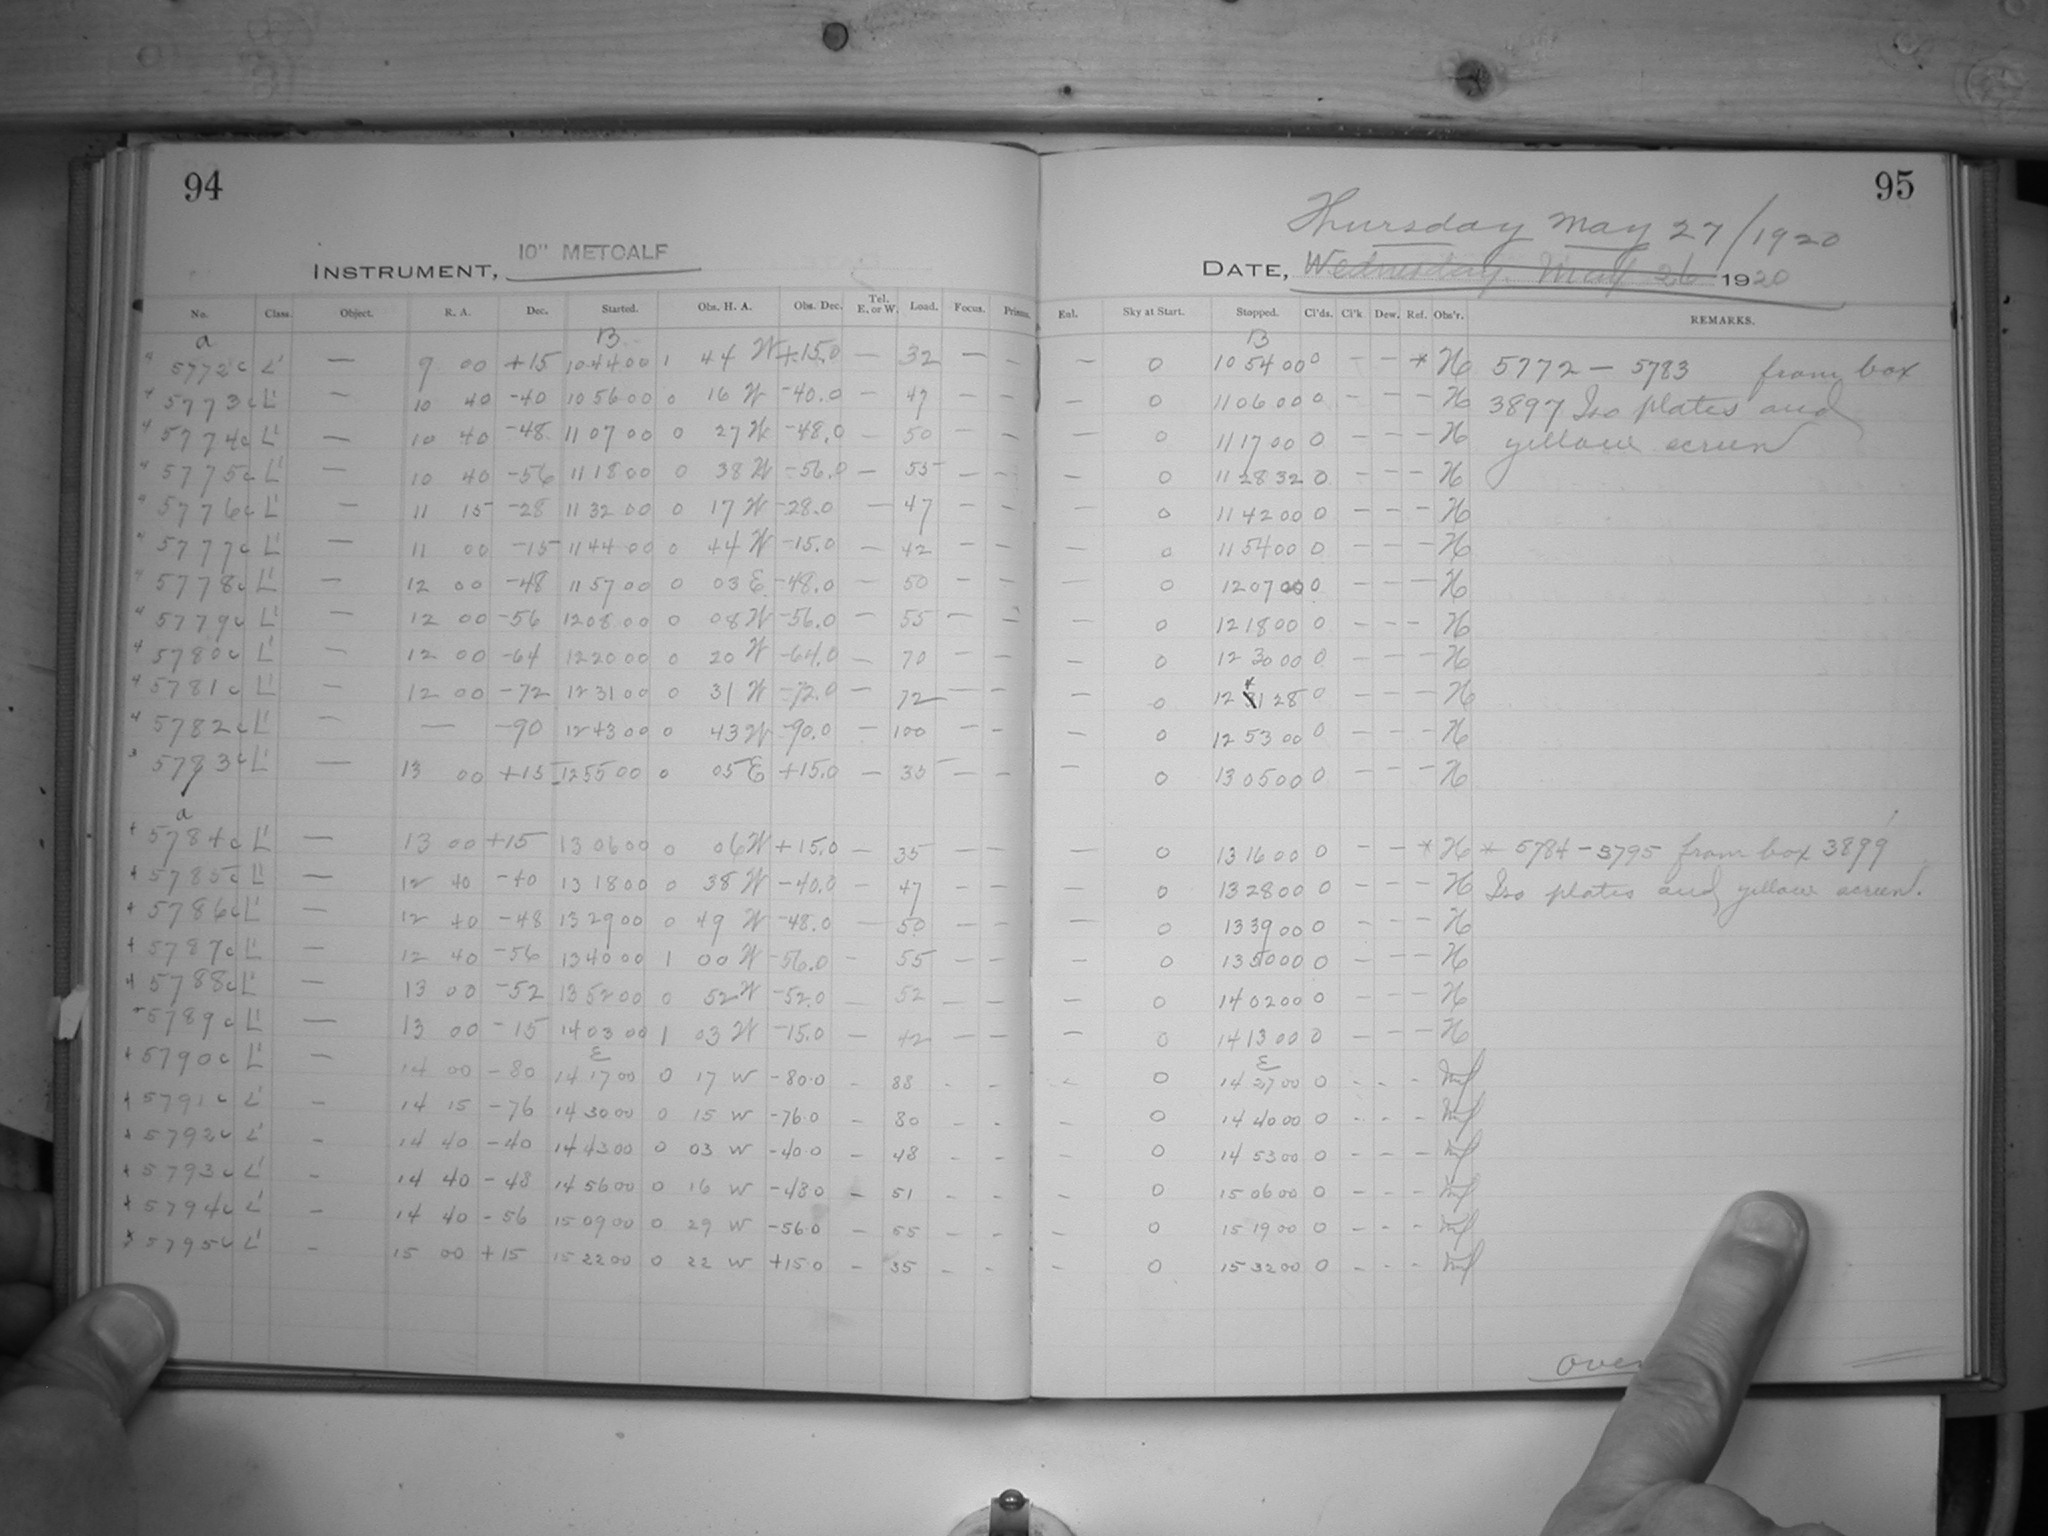 94
95
Thursday May 27/1920
INSTRUMENT, 10" METCALF
DATE, Wednesday, May 26 1920
No. Class. Object. R. A. Dec. Started. Obs. H. A. Obs. Dec. Tel. E. or W. Load. Focus. Enl. Sky at Start. Stopped. Cl'ds. Cl'k Dew. Ref. Obs'r. REMARKS.
a B B
5772c L' — 9 00 +15 10 44 00 1 44 W +15.0 — 32 — — — 0 10 54 00 0 — — * H 5772 — 5783 from box
5773c L' — 10 40 -40 10 56 00 0 16 W -40.0 — 47 — — — 0 11 06 00 0 — — — H 3897 Iso plates and
5774c L' — 10 40 -48 11 07 00 0 27 W -48.0 — 50 — — — 0 11 17 00 0 — — — H yellow screen
5775c L' — 10 40 -56 11 18 00 0 38 W -56.0 — 55 — — — 0 11 28 32 0 — — — H
5776c L' — 11 15 -28 11 32 00 0 17 W -28.0 — 47 — — — 0 11 42 00 0 — — — H
5777c L' — 11 00 -15 11 44 00 0 44 W -15.0 — 42 — — — 0 11 54 00 0 — — — H
5778c L' — 12 00 -48 11 57 00 0 03 E -48.0 — 50 — — — 0 12 07 00 0 — — — H
5779c L' — 12 00 -56 12 08 00 0 08 W -56.0 — 55 — — — 0 12 18 00 0 — — — H
5780c L' — 12 00 -64 12 20 00 0 20 W -64.0 — 70 — — — 0 12 30 00 0 — — — H
5781c L' — 12 00 -72 12 31 00 0 31 W -72.0 — 72 — — — 0 12 41 28 0 — — — H
5782c L' — — -90 12 43 00 0 43 W -90.0 — 100 — — — 0 12 53 00 0 — — — H
5783c L' — 13 00 +15 12 55 00 0 05 E +15.0 — 35 — — — 0 13 05 00 0 — — — H
a
5784c L' — 13 00 +15 13 06 00 0 06 W +15.0 — 35 — — — 0 13 16 00 0 — — * H * 5784 - 5795 from box 3899
5785c L' — 12 40 -40 13 18 00 0 38 W -40.0 — 47 — — — 0 13 28 00 0 — — — H Iso plates and yellow screen.
5786c L' — 12 40 -48 13 29 00 0 49 W -48.0 — 50 — — — 0 13 39 00 0 — — — H
5787c L' — 12 40 -56 13 40 00 1 00 W -56.0 — 55 — — — 0 13 50 00 0 — — — H
5788c L' — 13 00 -52 13 52 00 0 52 W -52.0 — 52 — — — 0 14 02 00 0 — — — H
5789c L' — 13 00 -15 14 03 00 1 03 W -15.0 — 42 — — — 0 14 13 00 0 — — — H
E E
5790c L' — 14 00 -80 14 17 00 0 17 W -80.0 - 88 - - - 0 14 27 00 0 - - -
5791c L' — 14 15 -76 14 30 00 0 15 W -76.0 - 80 - - - 0 14 40 00 0 - - -
5792c L' - 14 40 -40 14 43 00 0 03 W -40.0 - 48 - - - 0 14 53 00 0 - - -
5793c L' - 14 40 -48 14 56 00 0 16 W -48.0 - 51 - - - 0 15 06 00 0 - - -
5794c L' - 14 40 -56 15 09 00 0 29 W -56.0 - 55 - - - 0 15 19 00 0 - - -
5795c L' - 15 00 +15 15 22 00 0 22 W +15.0 - 35 - - - 0 15 32 00 0 - - -